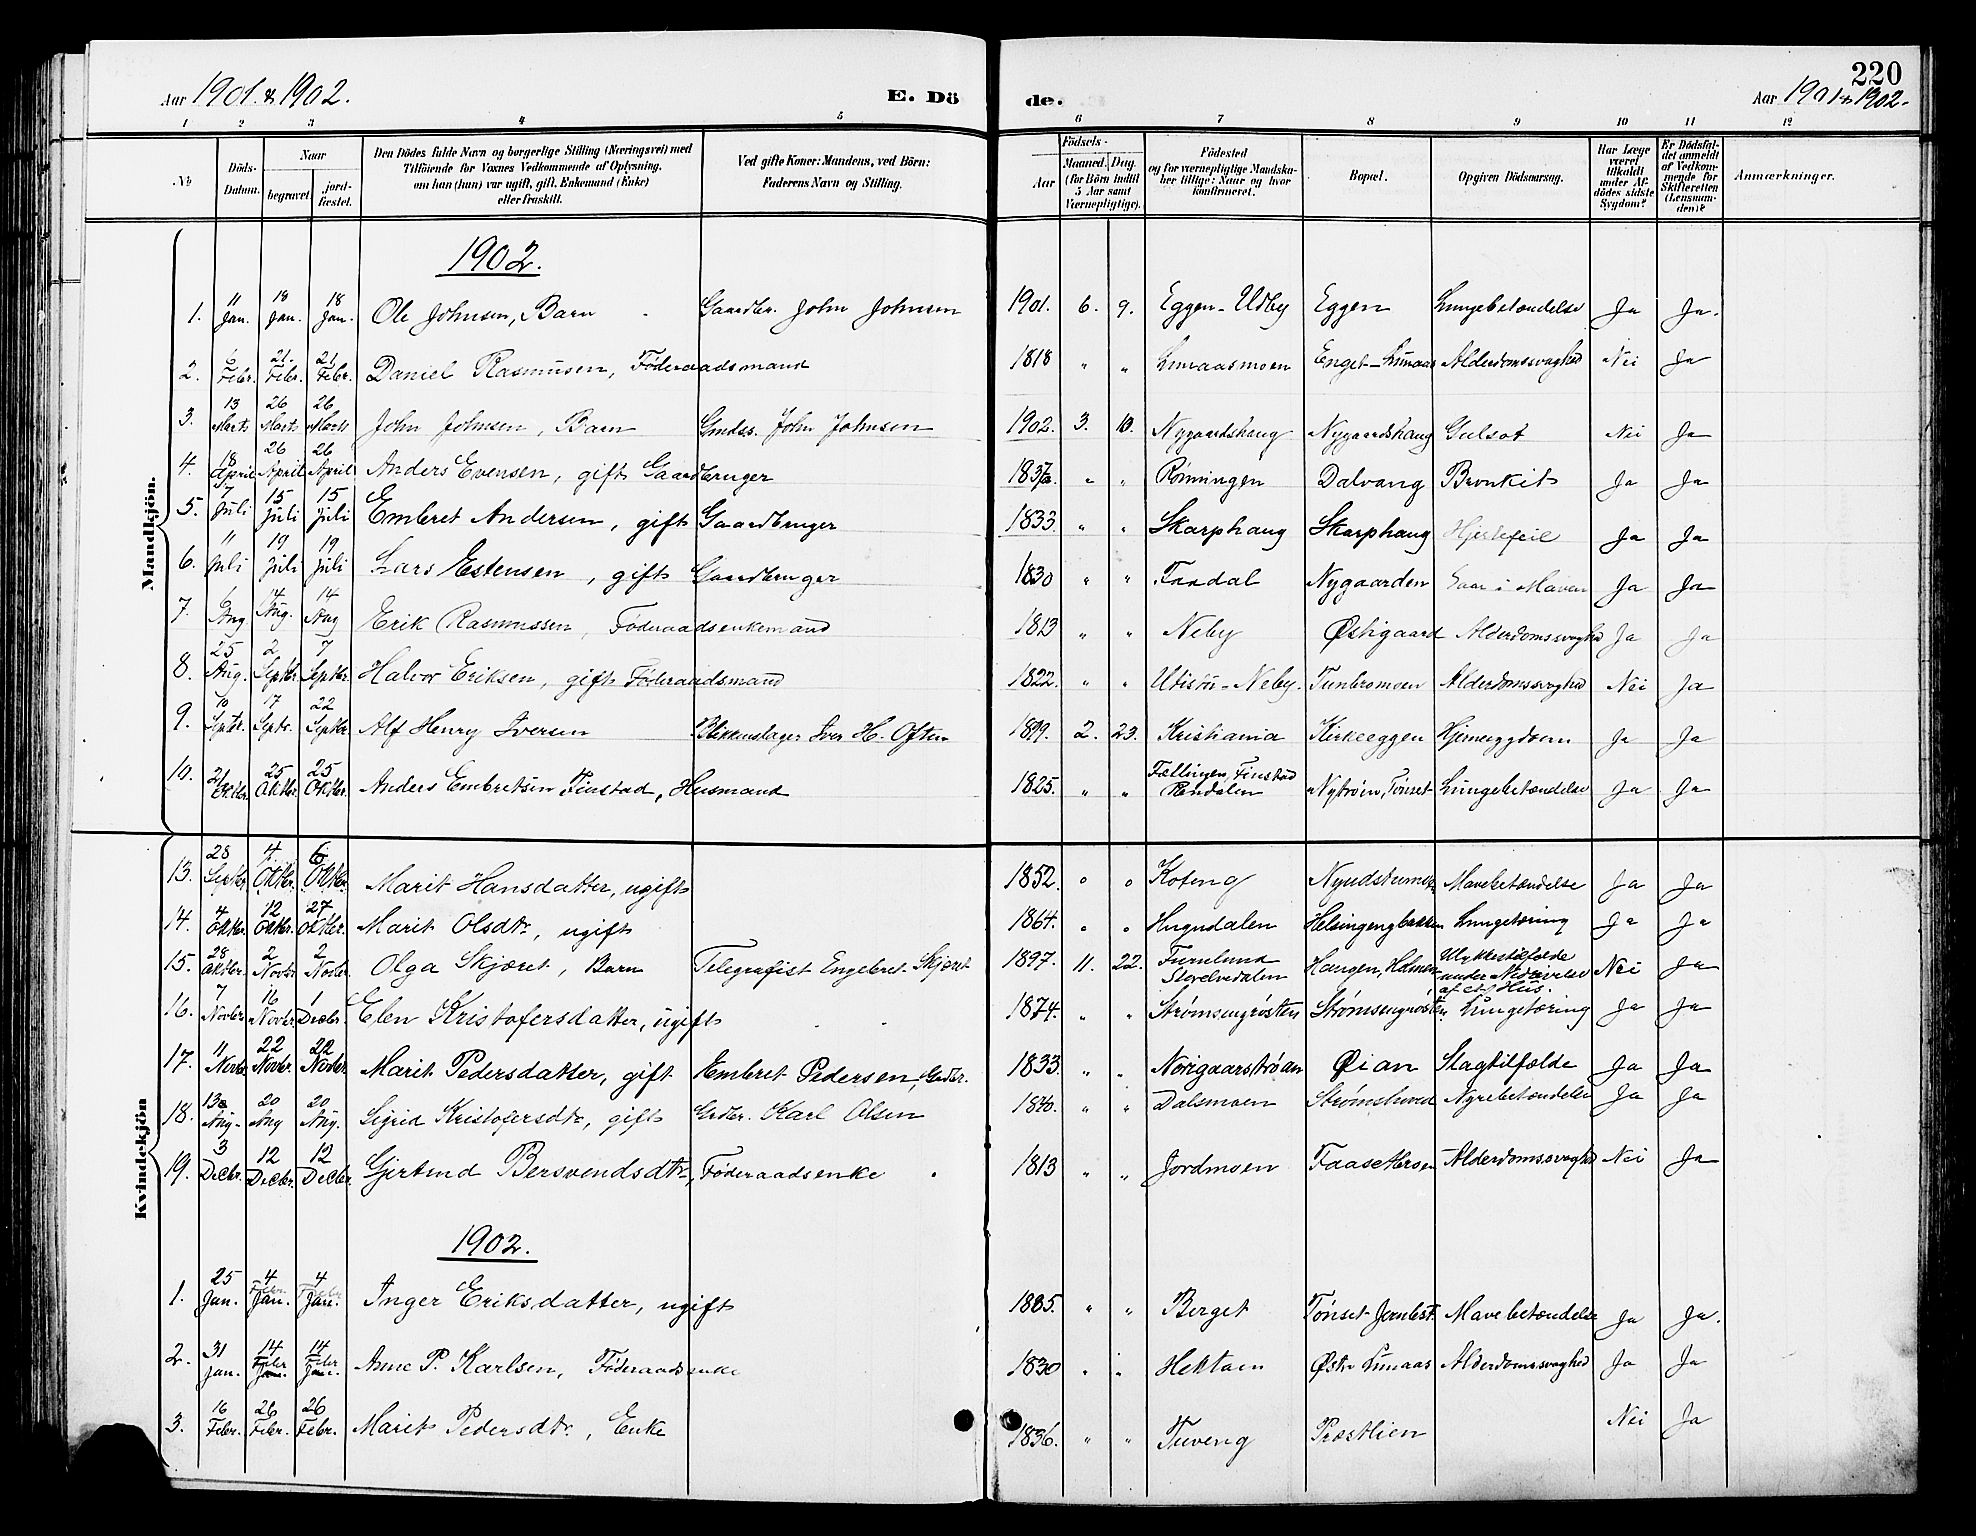 220
Aar 1901 & 1902. E. Dö de. Aar 1901 & 1902.
1 2 3 4 5 6 7 8 9 10 11 12
No Döds-Datum. Naar begravet. jord-fæstet. Den Dödes fulde Navn og borgerlige Stilling (Næringsvei) med Tilföiende for Voxnes Vedkommende af Oplysning, om han (hun) var ugift, gift, Enkemand (Enke) eller fraskilt. Ved gifte Koner: Mandens, ved Börn: Faderens Navn og Stilling. Födsels- Aar Maaned. Dag. (for Börn indtil 5 Aar samt Værnepligtige). Födested og for værnepligtige Mandska-ber tillige: Naar og hvor konfirmeret. Bopæl. Opgiven Dödsaarsag. Har Læge været tilkaldt under Af-dödes sidste Sygdom? Er Dödsfal-det anmeldt af Vedkom-mende for Skifteretten (Lensman-den)? Anmærkninger.
Mandkjön.
1902.
1. 11 Jan. 18 Jan. 18 Jan. Ole Johnsen, Barn Gaardbr. John Johnsen 1901. 6. 9. Eggen-Udby Eggen Lungebetændelse Ja Ja.
2. Febr. 21. Febr. 21 Febr. Daniel Rasmusen, Föderaadsmand 1818 " " Lunaasmoen Enget-Lunaas Alderdomssvaghed Nei Ja
3. 13 Marts 26 Marts 26 Marts John Johnsen, Barn Gmdss. John Johnsen 1902. 3. 10. Nygaardshaug Nygaardshaug Gulsot Nei Ja
4. 18 April 26 April 26 April Anders Evensen, gift Gaardbruger " " Rønningen Dalvang Bronkit Ja Ja
5. 7 Juli 15 Juli 15 Juli Embret Andersen, gift Gaardbruger 1833. " " Skarphaug Skarphaug Hjertefeil Ja Ja
6. 11 Juli 19 Juli 19 Juli Lars Estensen, gift Gaardbruger 1830 " " Faadal Nygaarden Saar i Maven Ja Ja
7. Aug 14 Aug. 14 Aug Erik Rasmussen, Föderaadsenkemand 1813 " " Neby Østigaard Alderdomssvaghed Ja Ja
8. 25 Aug. 2 Septbr. 7 Septbr. Halvor Eriksen, gift Föderaadsmand 1822. " " Utistu-Neby. Tunbromoen Alderdomssvaghed Nei Ja
9. 10 Septbr. 17 Septr. 22 Septbr Alf Henry Iversen Blikkenslager Iver H. Often 1899. 2. 23. Kristiania Kirkeeggen Hjernesygdom Ja Ja
10. 21 Oktbr. 25 Oktbr. 25 Oktbr. Anders Embretsen Finstad, Husmand 1825. " " Fællingen, Finstad Rendalen Nytrøen, Tønset Lungebetændelse Ja Ja
Kvindekjön
13. 28 Septbr 4. Oktbr. 6 Oktbr. Marit Hansdatter, ugift 1852. " " Koteng Mavebetændelse Ja Ja
14. 4 Oktbr. 12 Oktbr. 27 Oktbr. Marit Olsdtr, ugift 1864. " " Hugndalen Helsingengbakken Lungetæring Ja Ja
15. 28 Oktbr. 2 Novbr 2 Novbr. Olga Skjæret, Barn Telegrafist Engebret Skjæret 1897. 11. 22. Furulund Størelvedalen Haugen, Holmen Ulykkestilfælde under Nedrivelse af et Hus. Nei Ja
16. 7 Novbr. 16 Novbr. 1 Decbr. Elen Kristofersdatter, ugift 1874. " " Strømsengrøsten Strømsengrøsten. Lungetæring Ja Ja
17. 11 Novbr. 22 Novbr. 22 Novbr Marit Pedersdatter, gift Embret Pedersen, Grdbr. 1833. " " Norigaarstrøan Øian Slagtilfælde Ja Ja
18. 13 Aug. 20 Aug 20 Aug. Sigrid Kristofersdtr, gift Grdbr. Karl Olsen 1840. " " Dalsmoen Strømshoved Nyrebetændelse Ja Ja
19. 3 Decbr. 12 Decbr. 12 Decbr. Gjertrud Bersvendsdtr, Föderaadsenke 1813 " " Jordmoen Faasetkroen Alderdomssvaghed Nei Ja
1902.
1. 25 Jan. 4 Febr. Jan. 4 Febr Jan. Inger Eriksdatter, ugift 1885. " " Berget Tønset-Jernbst. Mavebetændelse Ja Ja.
2. 31 Jan. 14 Febr Jan. 14 Febr Jan. Anne P. Karlsen, Föderaadsenke 1830 " " Hektoen Østr Lunaas Alderdomssvaghed Ja Ja
3. 16 Febr. 26 Febr. 26 Febr. Marit Pedersdtr, Enke 1836. " " Tuveng Præstlien Nei Ja